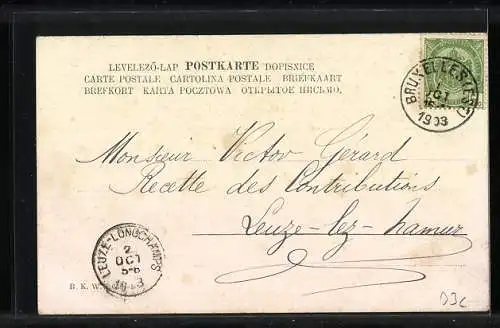 LEVELEZŐ-LAP POSTKARTE DOPISNICE
CARTE POSTALE CARTOLINA POSTALE BRIEFKAART
BREFKORT KARTA POCZTOWA ОТКРЫТОЕ ПИСЬМО.
BRUXELLES
OCT
1903
Monsieur Victor Gérard
Recette des Contributions
Leuze-lez-Namur
LEUZE-LONGCHAMPS
2
OCT
5-6
B. K. W.
D3c